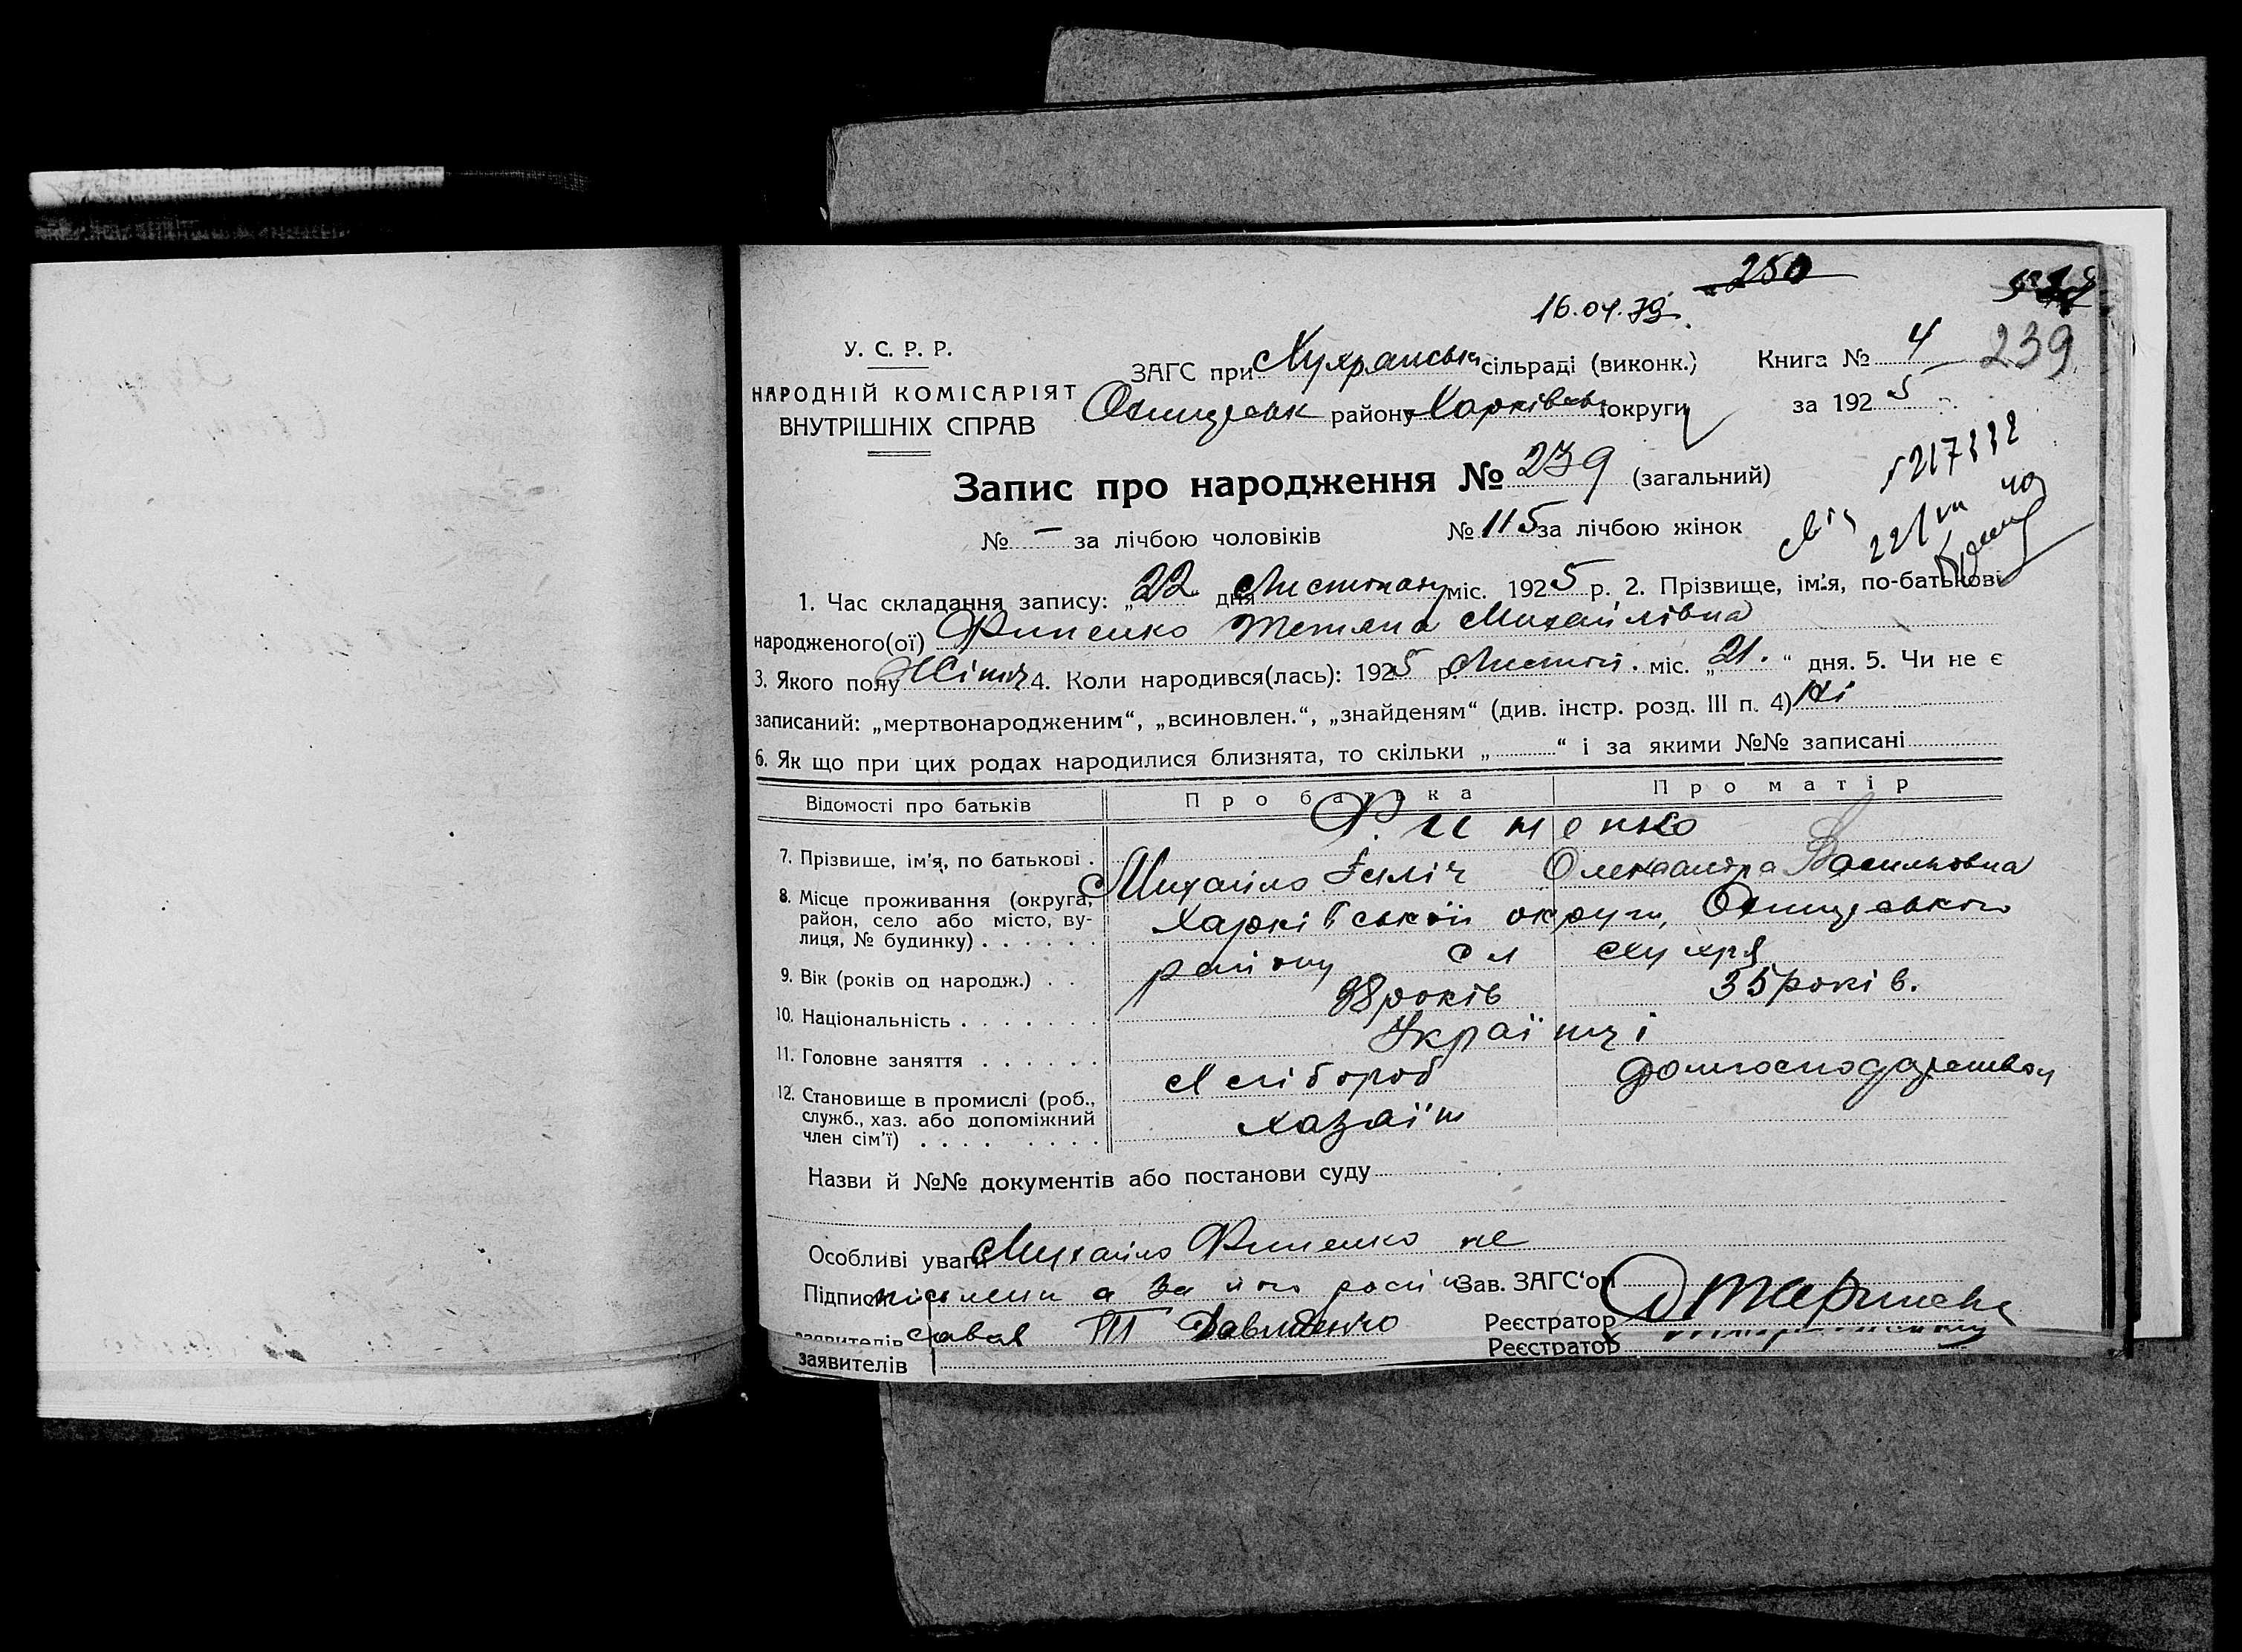 250
16.04.79.
У. С. Р. Р.
НАРОДНІЙ КОМІСАРІЯТ
ВНУТРІШНІХ СПРАВ
ЗАГС при Хухранськ сільраді (виконк.)
Книга № 4
239
района Харківськ округи
за 1925 р.
Запис про народження № 239 (загальний)
№ – за лічбою чоловіків № 115 за лічбою жінок
1. Час складання запису: „22 дня Листопаду міс. 1925 р. 2. Прізвище, ім'я, по-батькові
народженого(ої) Фименко Тетяна Михайлівна
3. Якого полу Жіноч 4. Коли народився(лась): 1925 р. Листоп. міс. „21." дня. 5. Чи не є
записаний: „мертвонародженим“, „всиновлен.“, „знайденям“ (див. інстр. розд. III п. 4) Ні
6. Як що при цих родах народилися близнята, то скільки „ “ і за якими №№ записані
Відомості про батьків Про батька Про матір
7. Прізвище, ім'я, по батькові .
Михайло Ілліч Олександра Васильовна
8. Місце проживання (округа,
район, село або місто, ву-
лиця, № будинку) . . . . . .
Харківської округи,
району сл Хухря
9. Вік (років од народж.) . . 38 років 35 років.
10. Національність . . . . . . . Українці
11. Головне заняття . . . . . . Хлібороб домгосподарством
12. Становище в промислі (роб.,
служб., хаз. або допоміжний
член сім'ї) . . . . . . . .
хазаїн
Назви й №№ документів або постанови суду
Особливі уваги Михайло не
Підписи а за його Зав. ЗАГС'ом
заявителів Давиденко Реєстратор
заявителів Реєстратор